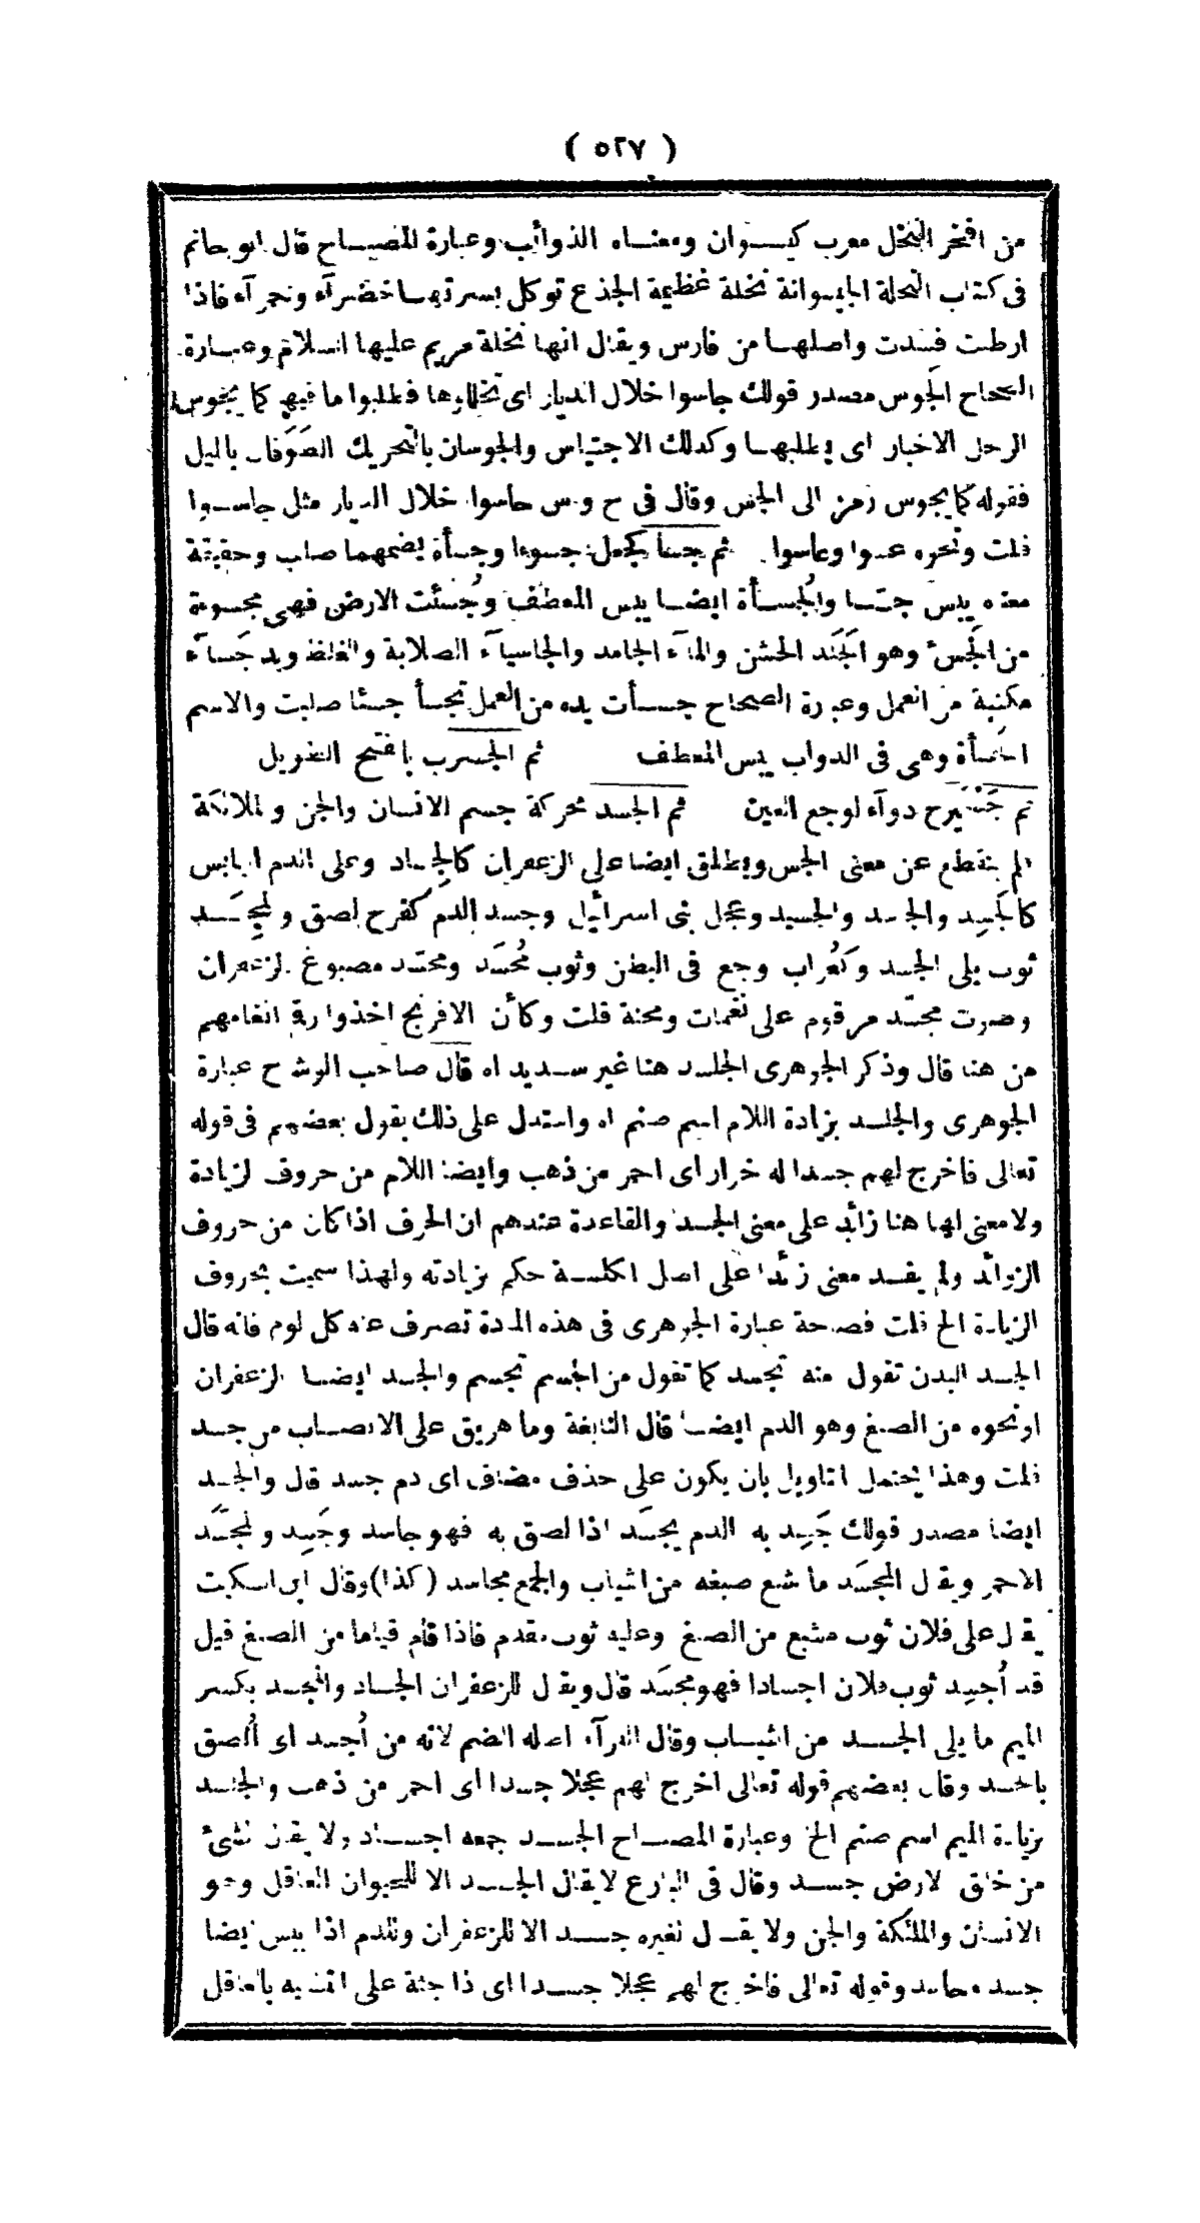 ( ٥٢٧ )
من افخر النخل معرب كيسوان ومعناه الذوائب وعبارة المصباح قال ابو حاتم
فى كتاب النخلة الجيسوانة نخلة عظيمة الجذع توكل بسرتها خضرآء وحمرآء فاذا
ارطبت فسدت واصلها من فارس ويقال انها نخلة مريم عليها السلام وعبارة
الصحاح الجوس مصدر قولك جاسوا خلال الديار اى تخللوها فطلبوا ما فيها كما يجوس
الرجل الاخبار اى يطلبها وكذلك الاجتياس والجوسان بالتحريك الطَوَفان بالليل
فقوله كما يجوس رمز الى الجس وقال فى ح و س حاسوا خلال الديار مثل جاسوا
قلت ونحوه عسوا وعاسوا ثم جسأ كجعل جسوءا وجسأة بضمهما صلب وحقيقة
معناه يبس جسا والجُسأة ايضا يبس المعطف وجُسئت الارض فهى مجسوءة
من الجَسْء وهو الجَلَد الخشن والمآء الجامد والجاسيآء الصلابة والغلظ ويد جَسآء
مكنبة من العمل وعبارة الصحاح جسأت يده من العمل تجسأ جسئا صلبت والاسم
الجسأة وهى فى الدواب يبس المعطف ثم الجسرب بالفتح الطويل
ثم جَسْمَيرج دوآء لوجع العين ثم الجسد محركة جسم الانسان والجن والملائكة
لم ينقطع عن معنى الجس ويطلق ايضا على الزعفران كالجِساد وعلى الدم اليابس
كالجَسِد والجاسد والجسيد وعجل بنى اسرائيل وجسد الدم كفرح لصق والمِجسَد
ثوب يلى الجسد وكغُراب وجع فى البطن وثوب مُجسَد ومجسّد مصبوغ بالزعفران
وصوت مجسّد مرقوم على نغمات ومحنة قلت وكأن الافرنج اخذوا رقم انغامهم
من هنا قال وذكر الجوهرى الجلسد هنا غير سديد اه قال صاحب الوشاح عبارة
الجوهرى والجلسد بزيادة اللام اسم صنم اه واستدل على ذلك بقول بعضهم فى قوله
تعالى فاخرج لهم جسدا له خوار اى احمر من ذهب وايضا اللام من حروف الزيادة
ولا معنى لها هنا زائد على معنى الجسد والقاعدة عندهم ان الحرف اذا كان من حروف
الزوائد ولم يفد معنى زائدا على اصل الكلمة حكم بزيادته ولهذا سميت بحروف
الزيادة الخ قلت فصاحة عبارة الجوهرى فى هذه المادة تصرف عنه كل لوم فانه قال
الجسد البدن تقول منه تجسد كما تقول من الجسم تجسم والجسد ايضا الزعفران
او نحوه من الصبغ وهو الدم ايضا قال النابغة وما هريق على الانصاب من جسد
قلت وهذا يحتمل التاويل بان يكون على حذف مضاف اى دم جسد قال والجسد
ايضا مصدر قولك جَسِد به الدم يجسَد اذا لصق به فهو جاسد وجَسِد والمجسَّد
الاحمر ويقال المجسَد ما شبع صبغه من الثياب والجمع مجاسد (كذا) وقال ابن السكيت
يقال على فلان ثوب مشبع من الصبغ وعليه ثوب مفدم فاذا قام قياما من الصبغ قيل
قد اُجسِد ثوب فلان اجسادا فهو مجسَد قال ويقال للزعفران الجساد والمجسد بكسر
الميم ما يلى الجسد من الثياب وقال الفرآء اصله الضم لانه من اُجسد اى اُلصق
بالجسد وقال بعضهم قوله تعالى اخرج لهم عجلا جسدا اى احمر من ذهب والجلسد
بزيادة الميم اسم صنم الخ وعبارة المصباح الجسد جمعه اجساد ولا يقال لشئ
من خلق الارض جسد وقال فى البارع لا يقال الجسد الا للحيوان العاقل وهو
الانسان والملئكة والجن ولا يقال لغيره جسد الا للزعفران وللدم اذا يبس ايضا
جسد وجاسد وقوله تعالى فاخرج لهم عجلا جسدا اى ذا جثة على التشبيه بالعاقل